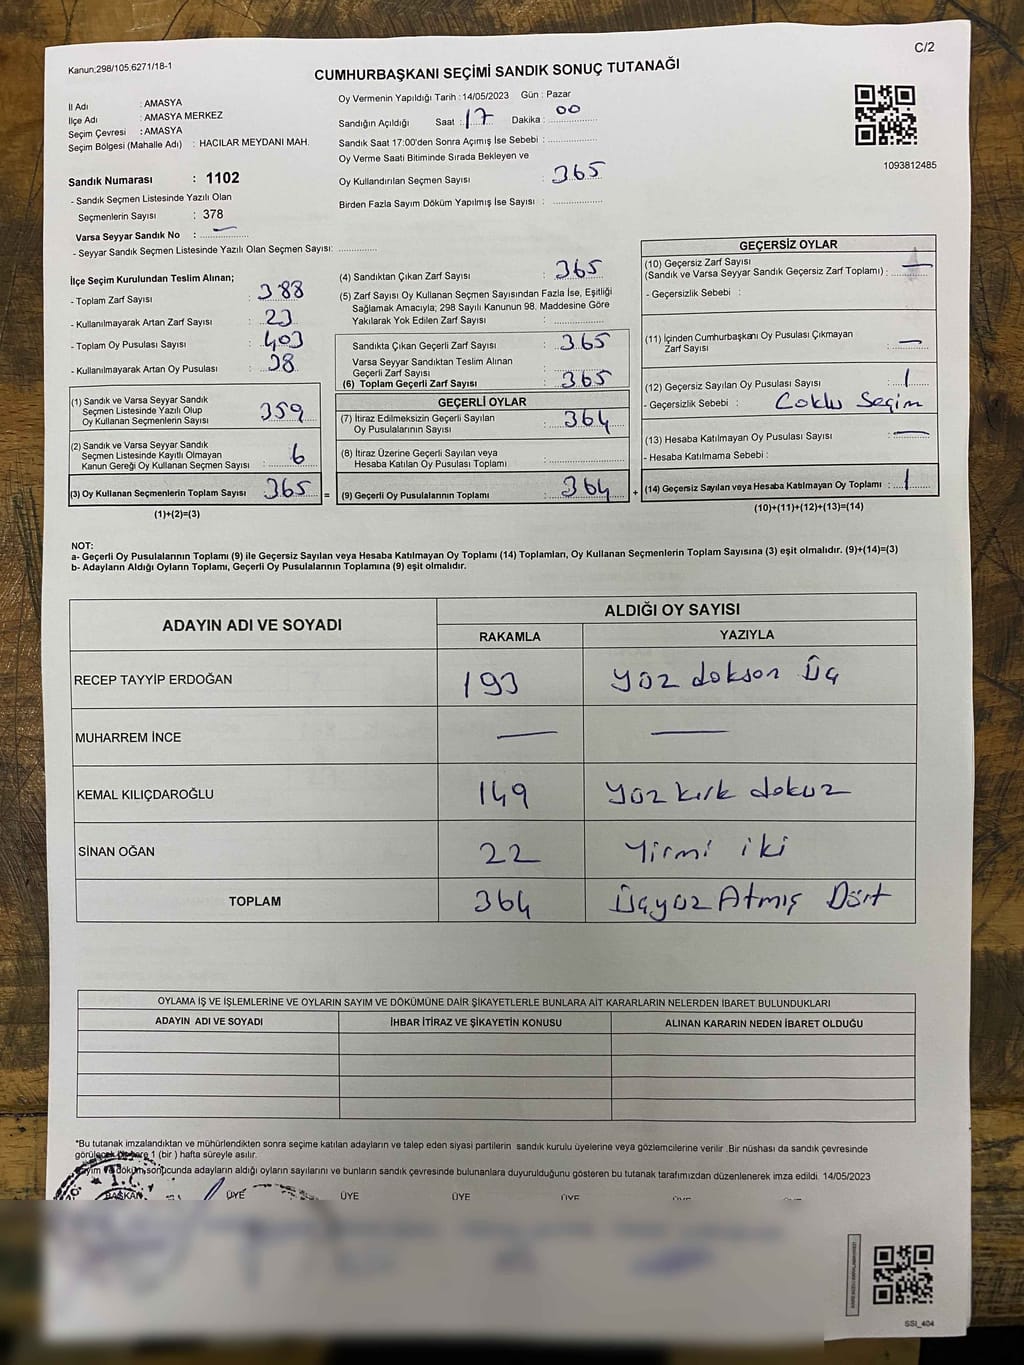 C/2
Kanun;298/105.6271/18-1
CUMHURBAŞKANI SEÇİMİ SANDIK SONUÇ TUTANAĞI
İl Adı : AMASYA
İlçe Adı : AMASYA MERKEZ
Seçim Çevresi : AMASYA
Seçim Bölgesi (Mahalle Adı) : HACILAR MEYDANI MAH.
Oy Vermenin Yapıldığı Tarih : 14/05/2023 Gün : Pazar
Sandığın Açıldığı Saat : 17 Dakika : 00
Sandık Saat 17:00'den Sonra Açımış İse Sebebi :
Oy Verme Saati Bitiminde Sırada Bekleyen ve
Oy Kullandırılan Seçmen Sayısı : 365
Birden Fazla Sayım Döküm Yapılmış İse Sayısı :
1093812485
Sandık Numarası : 1102
- Sandık Seçmen Listesinde Yazılı Olan
Seçmenlerin Sayısı : 378
Varsa Seyyar Sandık No : —
- Seyyar Sandık Seçmen Listesinde Yazılı Olan Seçmen Sayısı:
İlçe Seçim Kurulundan Teslim Alınan;
- Toplam Zarf Sayısı : 388
- Kullanılmayarak Artan Zarf Sayısı : 23
- Toplam Oy Pusulası Sayısı : 403
- Kullanılmayarak Artan Oy Pusulası : 38
(1) Sandık ve Varsa Seyyar Sandık
Seçmen Listesinde Yazılı Olup
Oy Kullanan Seçmenlerin Sayısı 359
(2) Sandık ve Varsa Seyyar Sandık
Seçmen Listesinde Kayıtlı Olmayan
Kanun Gereği Oy Kullanan Seçmen Sayısı : 6
(3) Oy Kullanan Seçmenlerin Toplam Sayısı 365 =
(1)+(2)=(3)
(4) Sandıktan Çıkan Zarf Sayısı : 365
(5) Zarf Sayısı Oy Kullanan Seçmen Sayısından Fazla İse, Eşitliği
Sağlamak Amacıyla; 298 Sayılı Kanunun 98. Maddesine Göre
Yakılarak Yok Edilen Zarf Sayısı :
Sandıkta Çıkan Geçerli Zarf Sayısı : 365
Varsa Seyyar Sandıktan Teslim Alınan
Geçerli Zarf Sayısı :
(6) Toplam Geçerli Zarf Sayısı : 365
GEÇERLİ OYLAR
(7) İtiraz Edilmeksizin Geçerli Sayılan
Oy Pusulalarının Sayısı : 364
(8) İtiraz Üzerine Geçerli Sayılan veya
Hesaba Katılan Oy Pusulası Toplamı :
(9) Geçerli Oy Pusulalarının Toplamı : 364 +
GEÇERSİZ OYLAR
(10) Geçersiz Zarf Sayısı
(Sandık ve Varsa Seyyar Sandık Geçersiz Zarf Toplamı) : —
- Geçersizlik Sebebi :
(11) İçinden Cumhurbaşkanı Oy Pusulası Çıkmayan
Zarf Sayısı : —
(12) Geçersiz Sayılan Oy Pusulası Sayısı : 1
- Geçersizlik Sebebi : Coklu Seçim
(13) Hesaba Katılmayan Oy Pusulası Sayısı : —
- Hesaba Katılmama Sebebi :
(14) Geçersiz Sayılan veya Hesaba Katılmayan Oy Toplamı : 1
(10)+(11)+(12)+(13)=(14)
NOT:
a- Geçerli Oy Pusulalarının Toplamı (9) ile Geçersiz Sayılan veya Hesaba Katılmayan Oy Toplamı (14) Toplamları, Oy Kullanan Seçmenlerin Toplam Sayısına (3) eşit olmalıdır. (9)+(14)=(3)
b- Adayların Aldığı Oyların Toplamı, Geçerli Oy Pusulalarının Toplamına (9) eşit olmalıdır.
ADAYIN ADI VE SOYADI ALDIĞI OY SAYISI
RAKAMLA YAZIYLA
RECEP TAYYİP ERDOĞAN 193 Yüz dokson Üç
MUHARREM İNCE — —
KEMAL KILIÇDAROĞLU 149 Yüz kırk dokuz
SİNAN OĞAN 22 Yirmi iki
TOPLAM 364 Üçyüz Atmış Dört
OYLAMA İŞ VE İŞLEMLERİNE VE OYLARIN SAYIM VE DÖKÜMÜNE DAİR ŞİKAYETLERLE BUNLARA AİT KARARLARIN NELERDEN İBARET BULUNDUKLARI
ADAYIN ADI VE SOYADI İHBAR İTİRAZ VE ŞİKAYETİN KONUSU ALINAN KARARIN NEDEN İBARET OLDUĞU
*Bu tutanak imzalandıktan ve mühürlendikten sonra seçime katılan adayların ve talep eden siyasi partilerin sandık kurulu üyelerine veya gözlemcilerine verilir. Bir nüshası da sandık çevresinde
görülecek bir yere 1 (bir ) hafta süreyle asılır.
Sayım ve döküm sonucunda adayların aldığı oyların sayılarını ve bunların sandık çevresinde bulunanlara duyurulduğunu gösteren bu tutanak tarafımızdan düzenlenerek imza edildi. 14/05/2023
BAŞKAN ÜYE ÜYE ÜYE ÜYE ÜYE
SSI_404